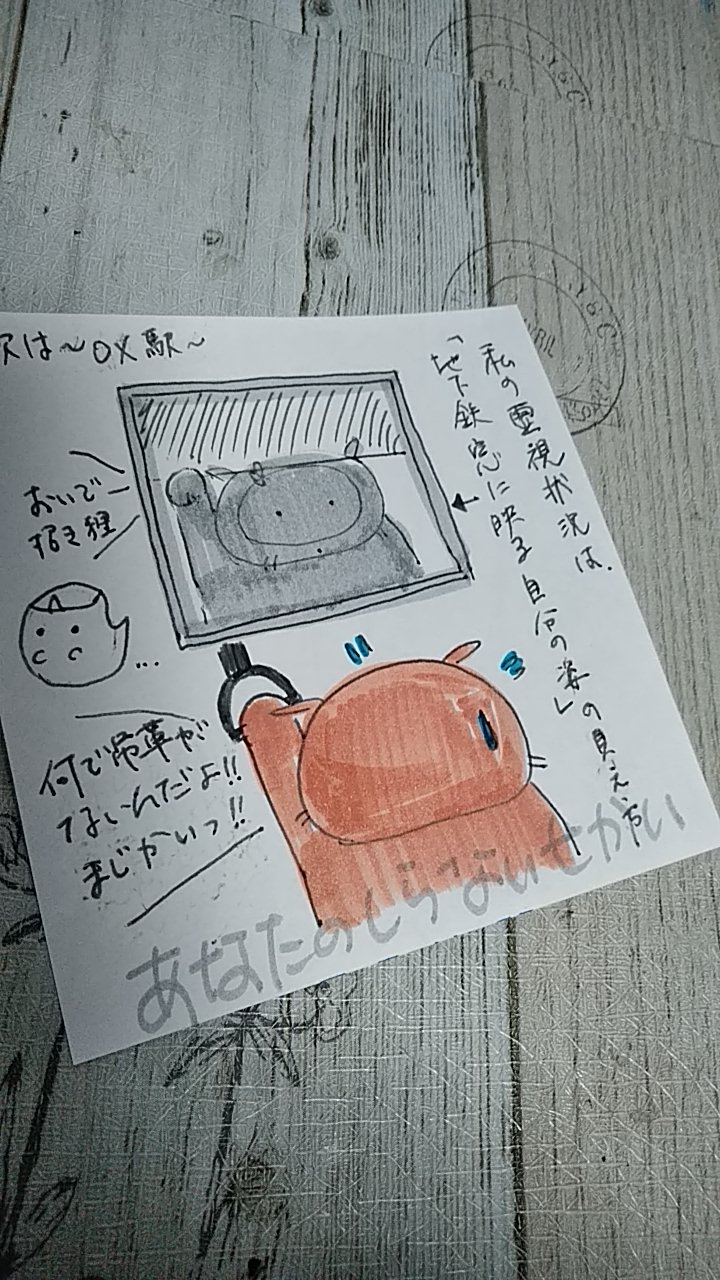 次は〜○×駅〜
私の霊視状況は、
「地下鉄窓に映る自分の姿」の見え方
おいで
招き狸
...
何で吊革が
ないんだよ!!
まじかいっ!!
あなたのしらないせかい